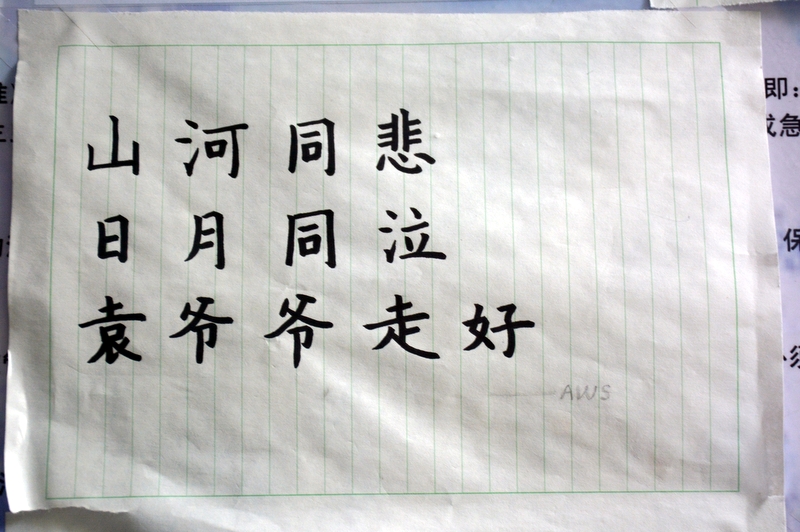 山河同悲
日月同泣
袁爷爷走好
——AWS
即：
急
保